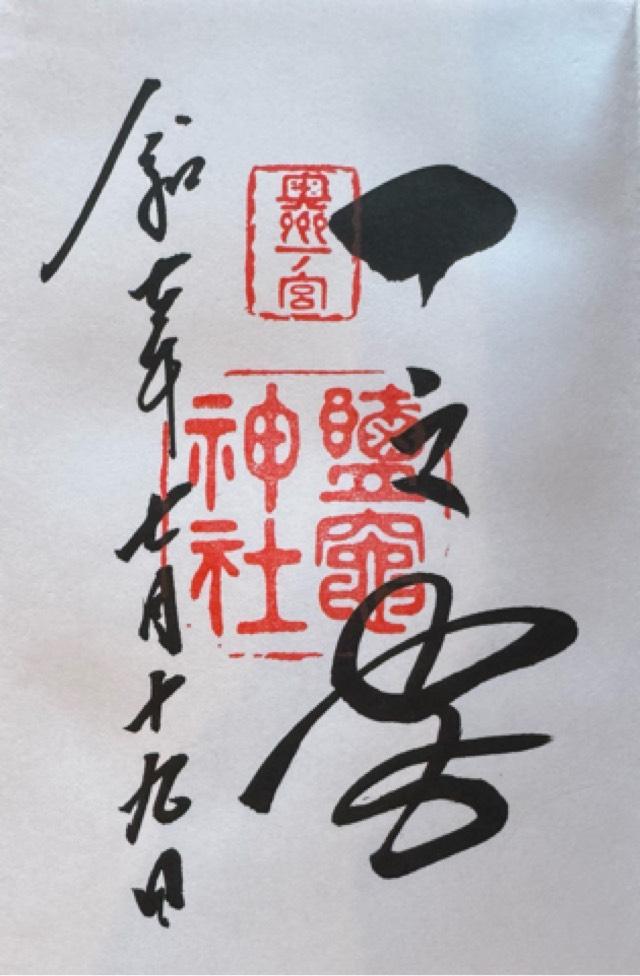 一之宮
奥州
一宮
鹽竈
神社
令和七年七月十九日